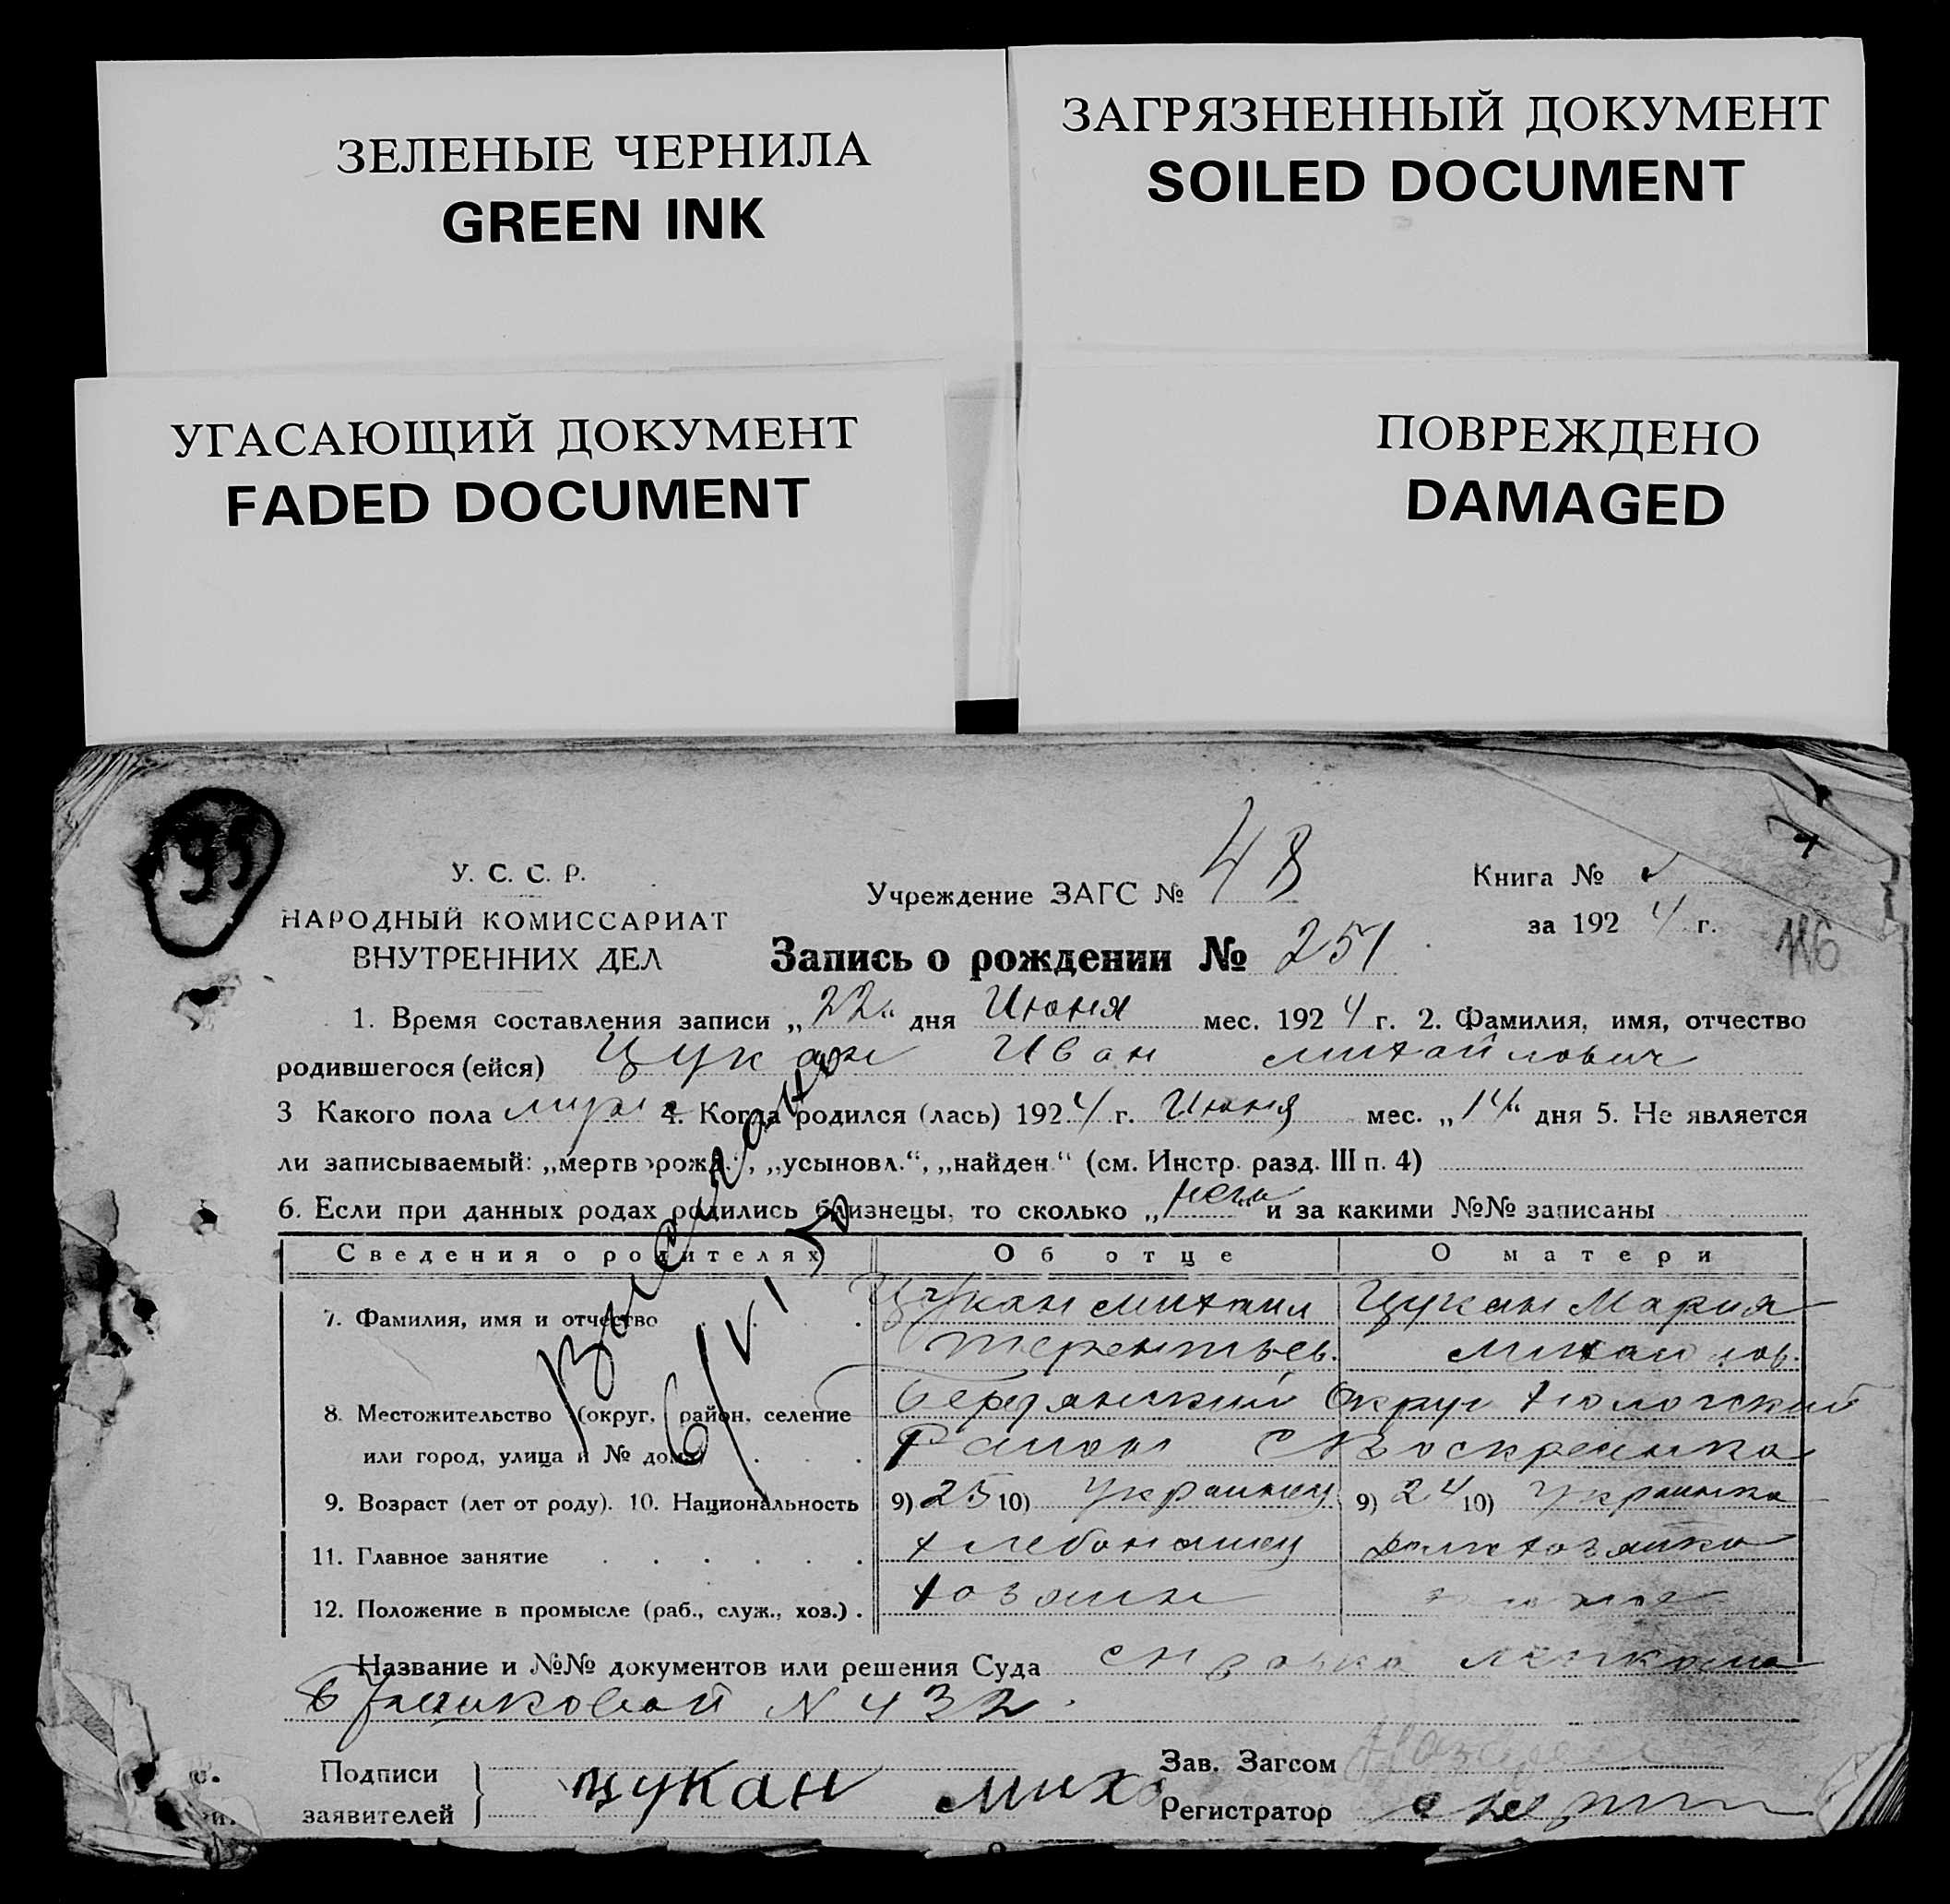 ЗЕЛЕНЫЕ ЧЕРНИЛА
GREEN INK
ЗАГРЯЗНЕННЫЙ ДОКУМЕНТ
SOILED DOCUMENT
УГАСАЮЩИЙ ДОКУМЕНТ
FADED DOCUMENT
ПОВРЕЖДЕНО
DAMAGED
У. С. С. Р.
НАРОДНЫЙ КОМИССАРИАТ
ВНУТРЕННИХ ДЕЛ
Учреждение ЗАГС №
Книга №
за 192 4 г.
Запись о рождении № 251
1. Время составления записи „22“ дня Июня мес. 192 4 г. 2. Фамилия, имя, отчество
родившегося (ейся) Цукан Иван Михайлович
3 Какого пола муж 4. Когда родился (лась) 192 4 г. Июня мес. „14“ дня 5. Не является
ли записываемый: „мертворожд.“, „усыновл.“, „найден“ (см. Инстр. разд. III п. 4)
6. Если при данных родах родились близнецы, то сколько „ “ и за какими №№ записаны
Сведения о родителях Об отце О матери
7. Фамилия, имя и отчество Цукан Михаил Цукан Мария
Терентьев. Михайлов.
8. Местожительство (округ, район, селение Бердянский Округ
или город, улица и № дома) Район С Воскресенка
9. Возраст (лет от роду). 10. Национальность 9) 25 10) Украинец 9) 24 10) Украинка
11. Главное занятие хлебопашец домохозяйка
12. Положение в промысле (раб., служ., хоз.) хозяин
Название и №№ документов или решения Суда справка
N 432.
Подписи
заявителей
цукан мих
Зав. Загсом
Регистратор